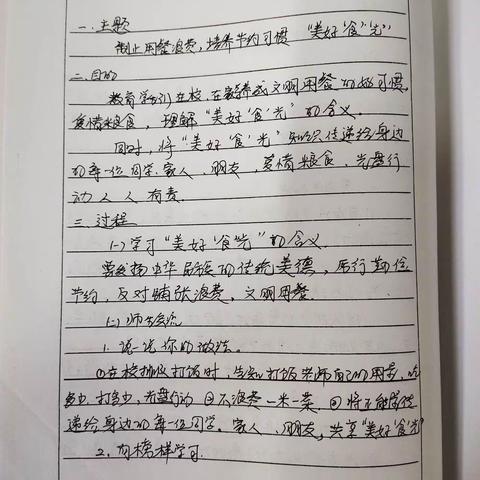 一.主题
制止用餐浪费,培养节约习惯 “美好‘食’光”
二.目的
教育学生们在校、在家养成文明用餐的好习惯,
爱惜粮食,理解“美好‘食’光”的含义.
同时,将“美好‘食’光”知识传递给身边
的每一位同学、家人、朋友,爱惜粮食、光盘行
动人人有责.
三.过程
(一)学习“美好‘食’光”的含义.
要发扬中华民族的传统美德,厉行勤俭
节约,反对铺张浪费,文明用餐.
(二)师生交流
1. 说一说你的做法.
①在校排队打饭时,告知打饭老师自己的用量,吃
多少,打多少,光盘行动 ②不浪费一米一菜. ③将
递给身边的每一位同学、家人、朋友,共享“美好‘食’光”
2. 向榜样学习.